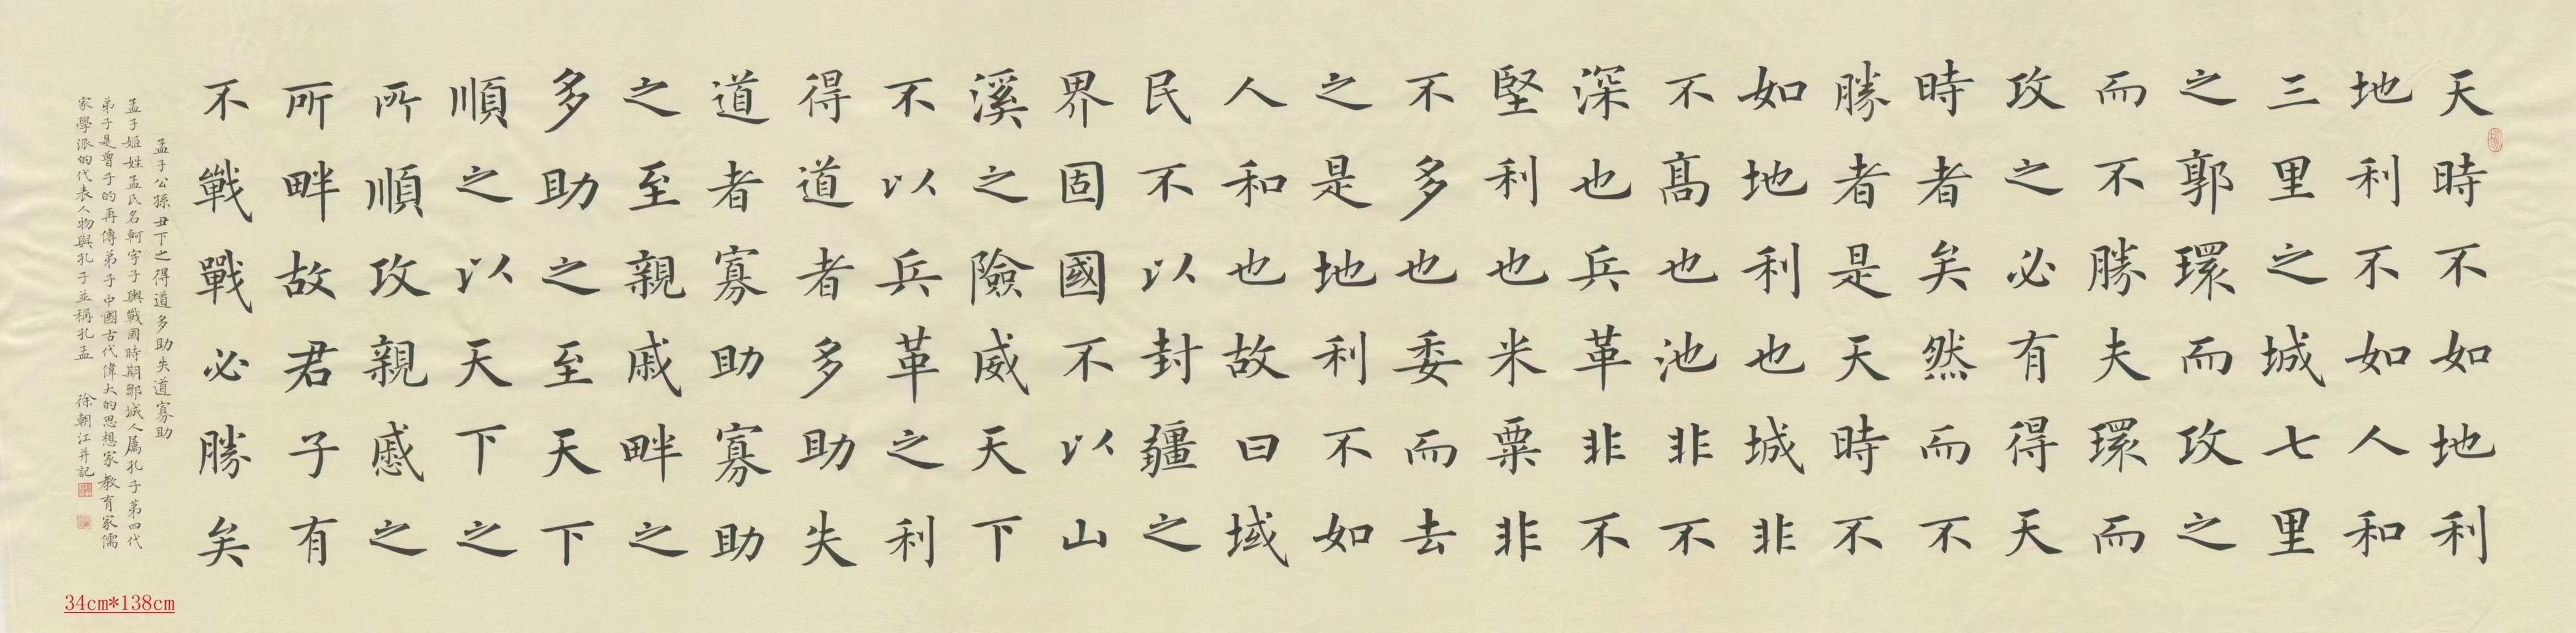 天時不如地利
地利不如人和
三里之城七里
之郭環而攻之
而不勝夫環而
攻之必有得天
時者矣然而不
勝者是天時不
如地利也城非
不髙也池非不
深也兵革非不
堅利也米粟非
不多也委而去
之是地利不如
人和也故曰域
民不以封疆之
界固國不以山
溪之險威天下
不以兵革之利
得道者多助失
道者寡助寡助
之至親戚畔之
多助之至天下
順之以天下之
所順攻親慼之
所畔故君子有
不戰戰必勝矣
孟子公孫丑下之得道多助失道寡助
孟子姬姓孟氏名軻字子與戰國時期鄒城人屬孔子第四代
弟子是曾子的再傳弟子中國古代偉大的思想家教育家儒
家學派的代表人物與孔子並稱孔孟 徐朝江并記
34cm*138cm